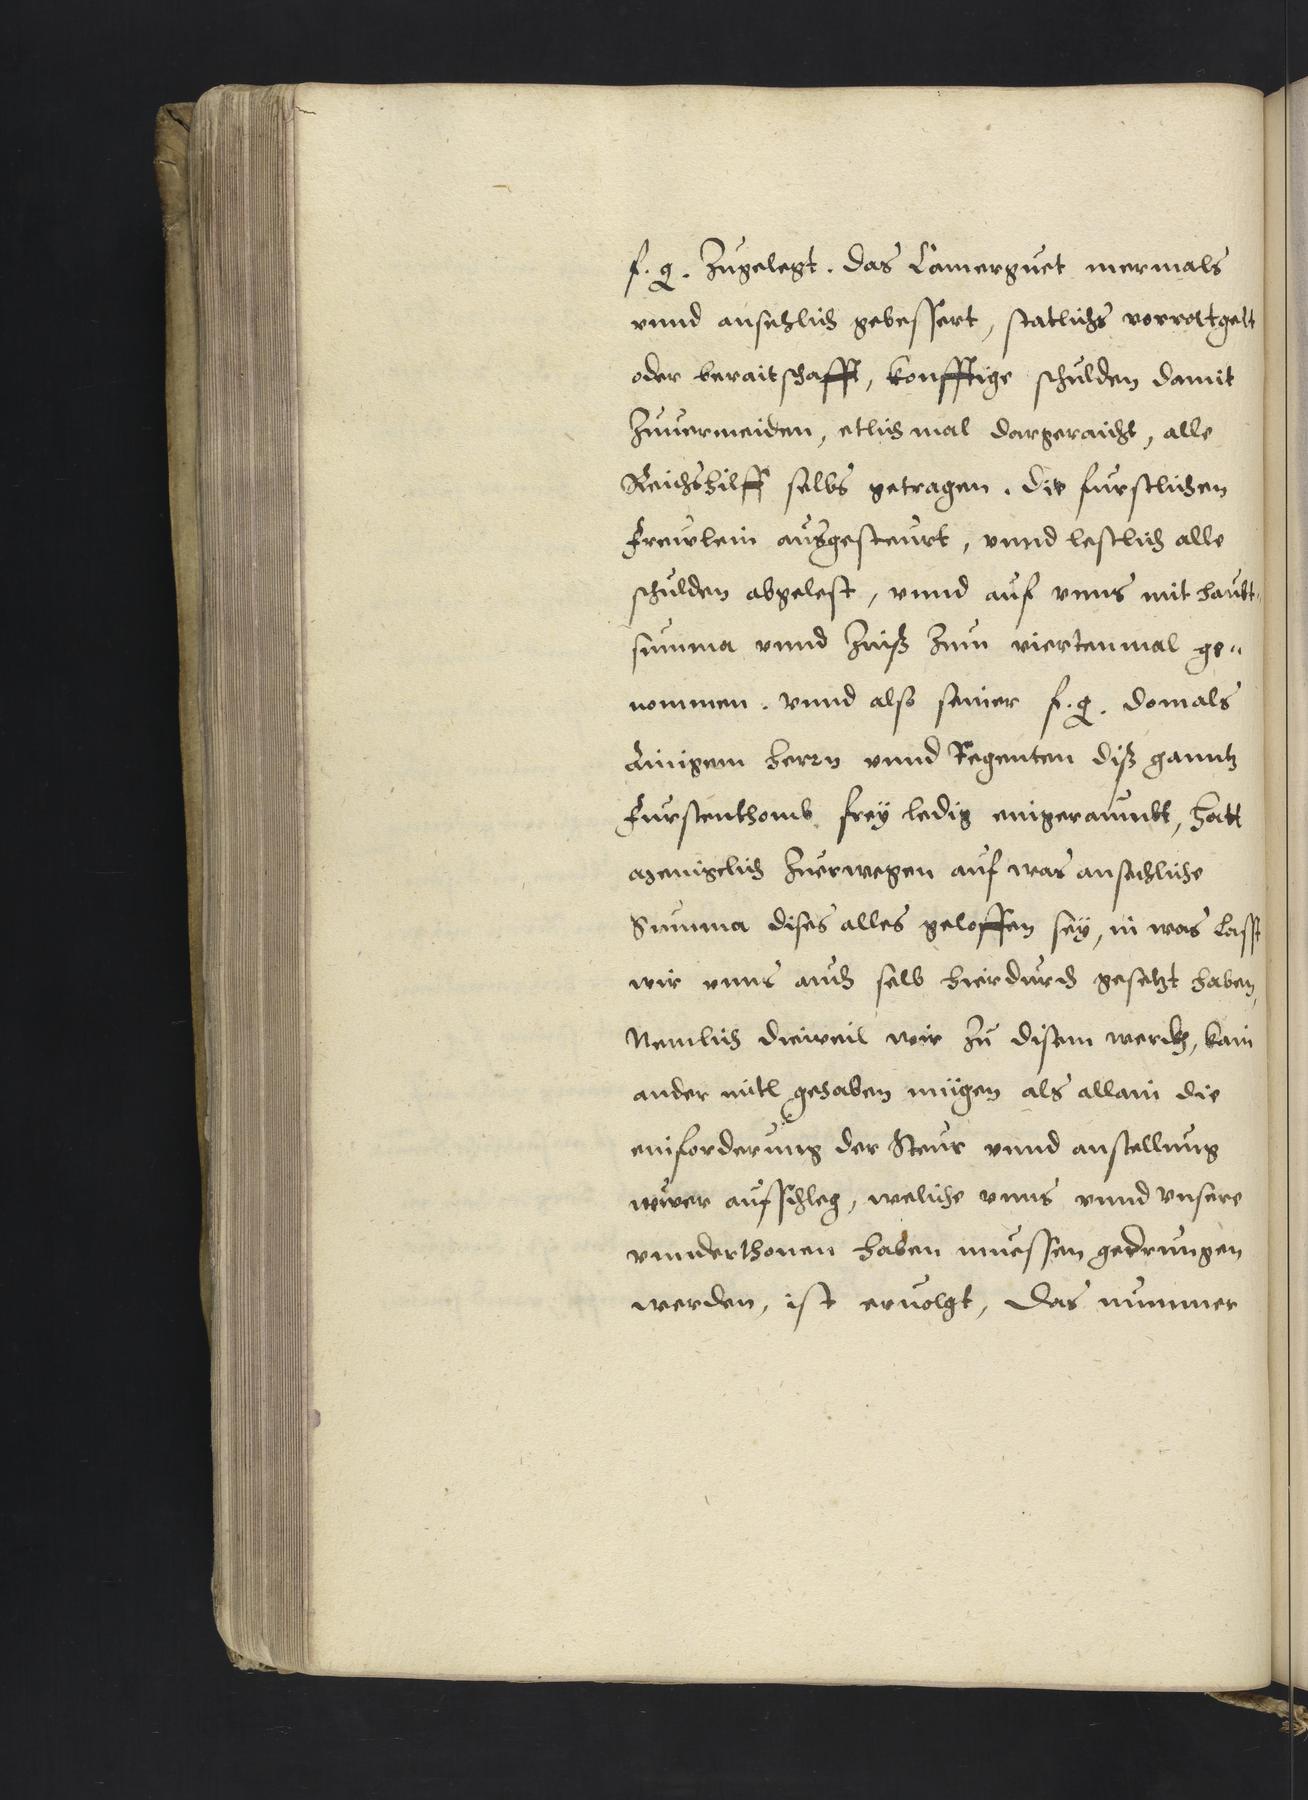 f. g. Zugelegt. das Camerguet mermals
vnnd ansehlich gebessert, statlichs vorrattgelt
oder beraitschafft, konfftige schulden damit
Zuuermeiden, etlich mal dargeraicht, alle
Reichshilff selbs getragen. die furstlichen
Frewlein ausgesteurt, vnnd lestlich alle
schulden abgelest, vnnd auf vnns mit haubt-
summa vnnd Zinß Zum viertenmal ge-
nommen. vnnd also seiner f. g. domals
Ainigem herrn vnnd Regenten diß ganntz
Furstenthomb frey ledig eingeraumbt, hatt
menigclich Zuerwegen auf was ansechliche
Summa dises alles geloffen sey, in was Lasst
wir vnns auch selb hierdurch gesetzt haben,
Nemlich dieweil wir Zu disem werckh, kain
ander mitl gehaben mügen als allain die
einforderung der Steur vnnd anstellung
newer aufschleg, weliche vnns vnnd vnsere
vnnderthonen haben muessen gedrungen
werden, ist eruolgt, das nummer